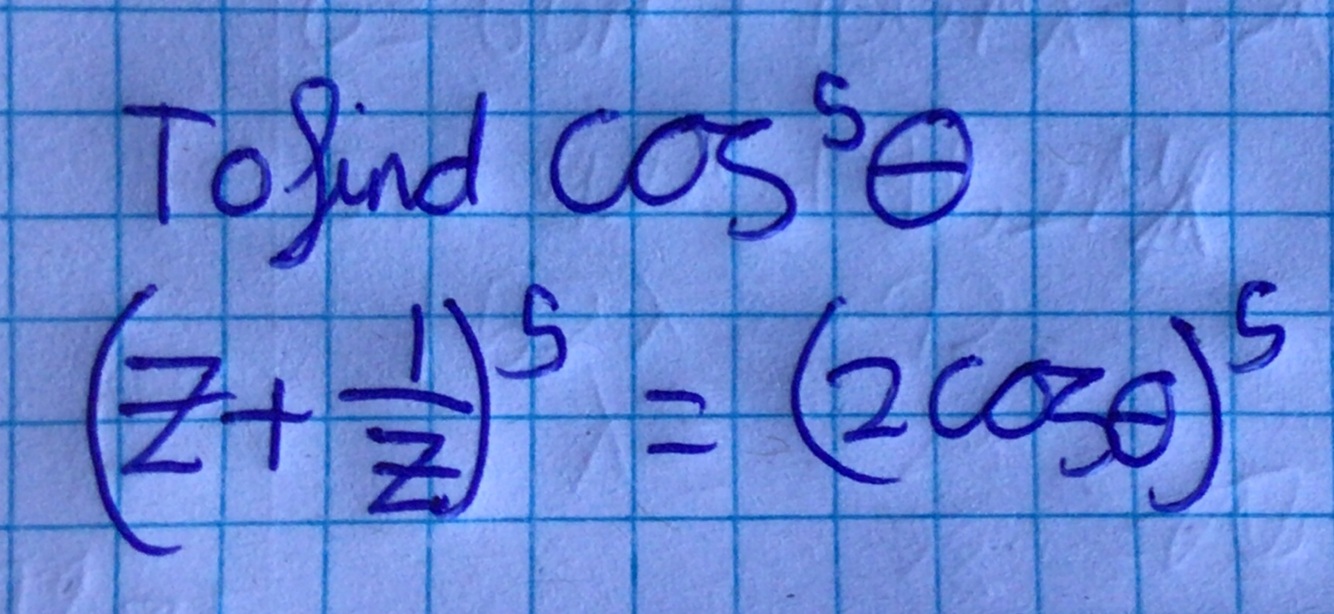 To find cos⁵θ
(z + 1/z)⁵ = (2cosθ)⁵